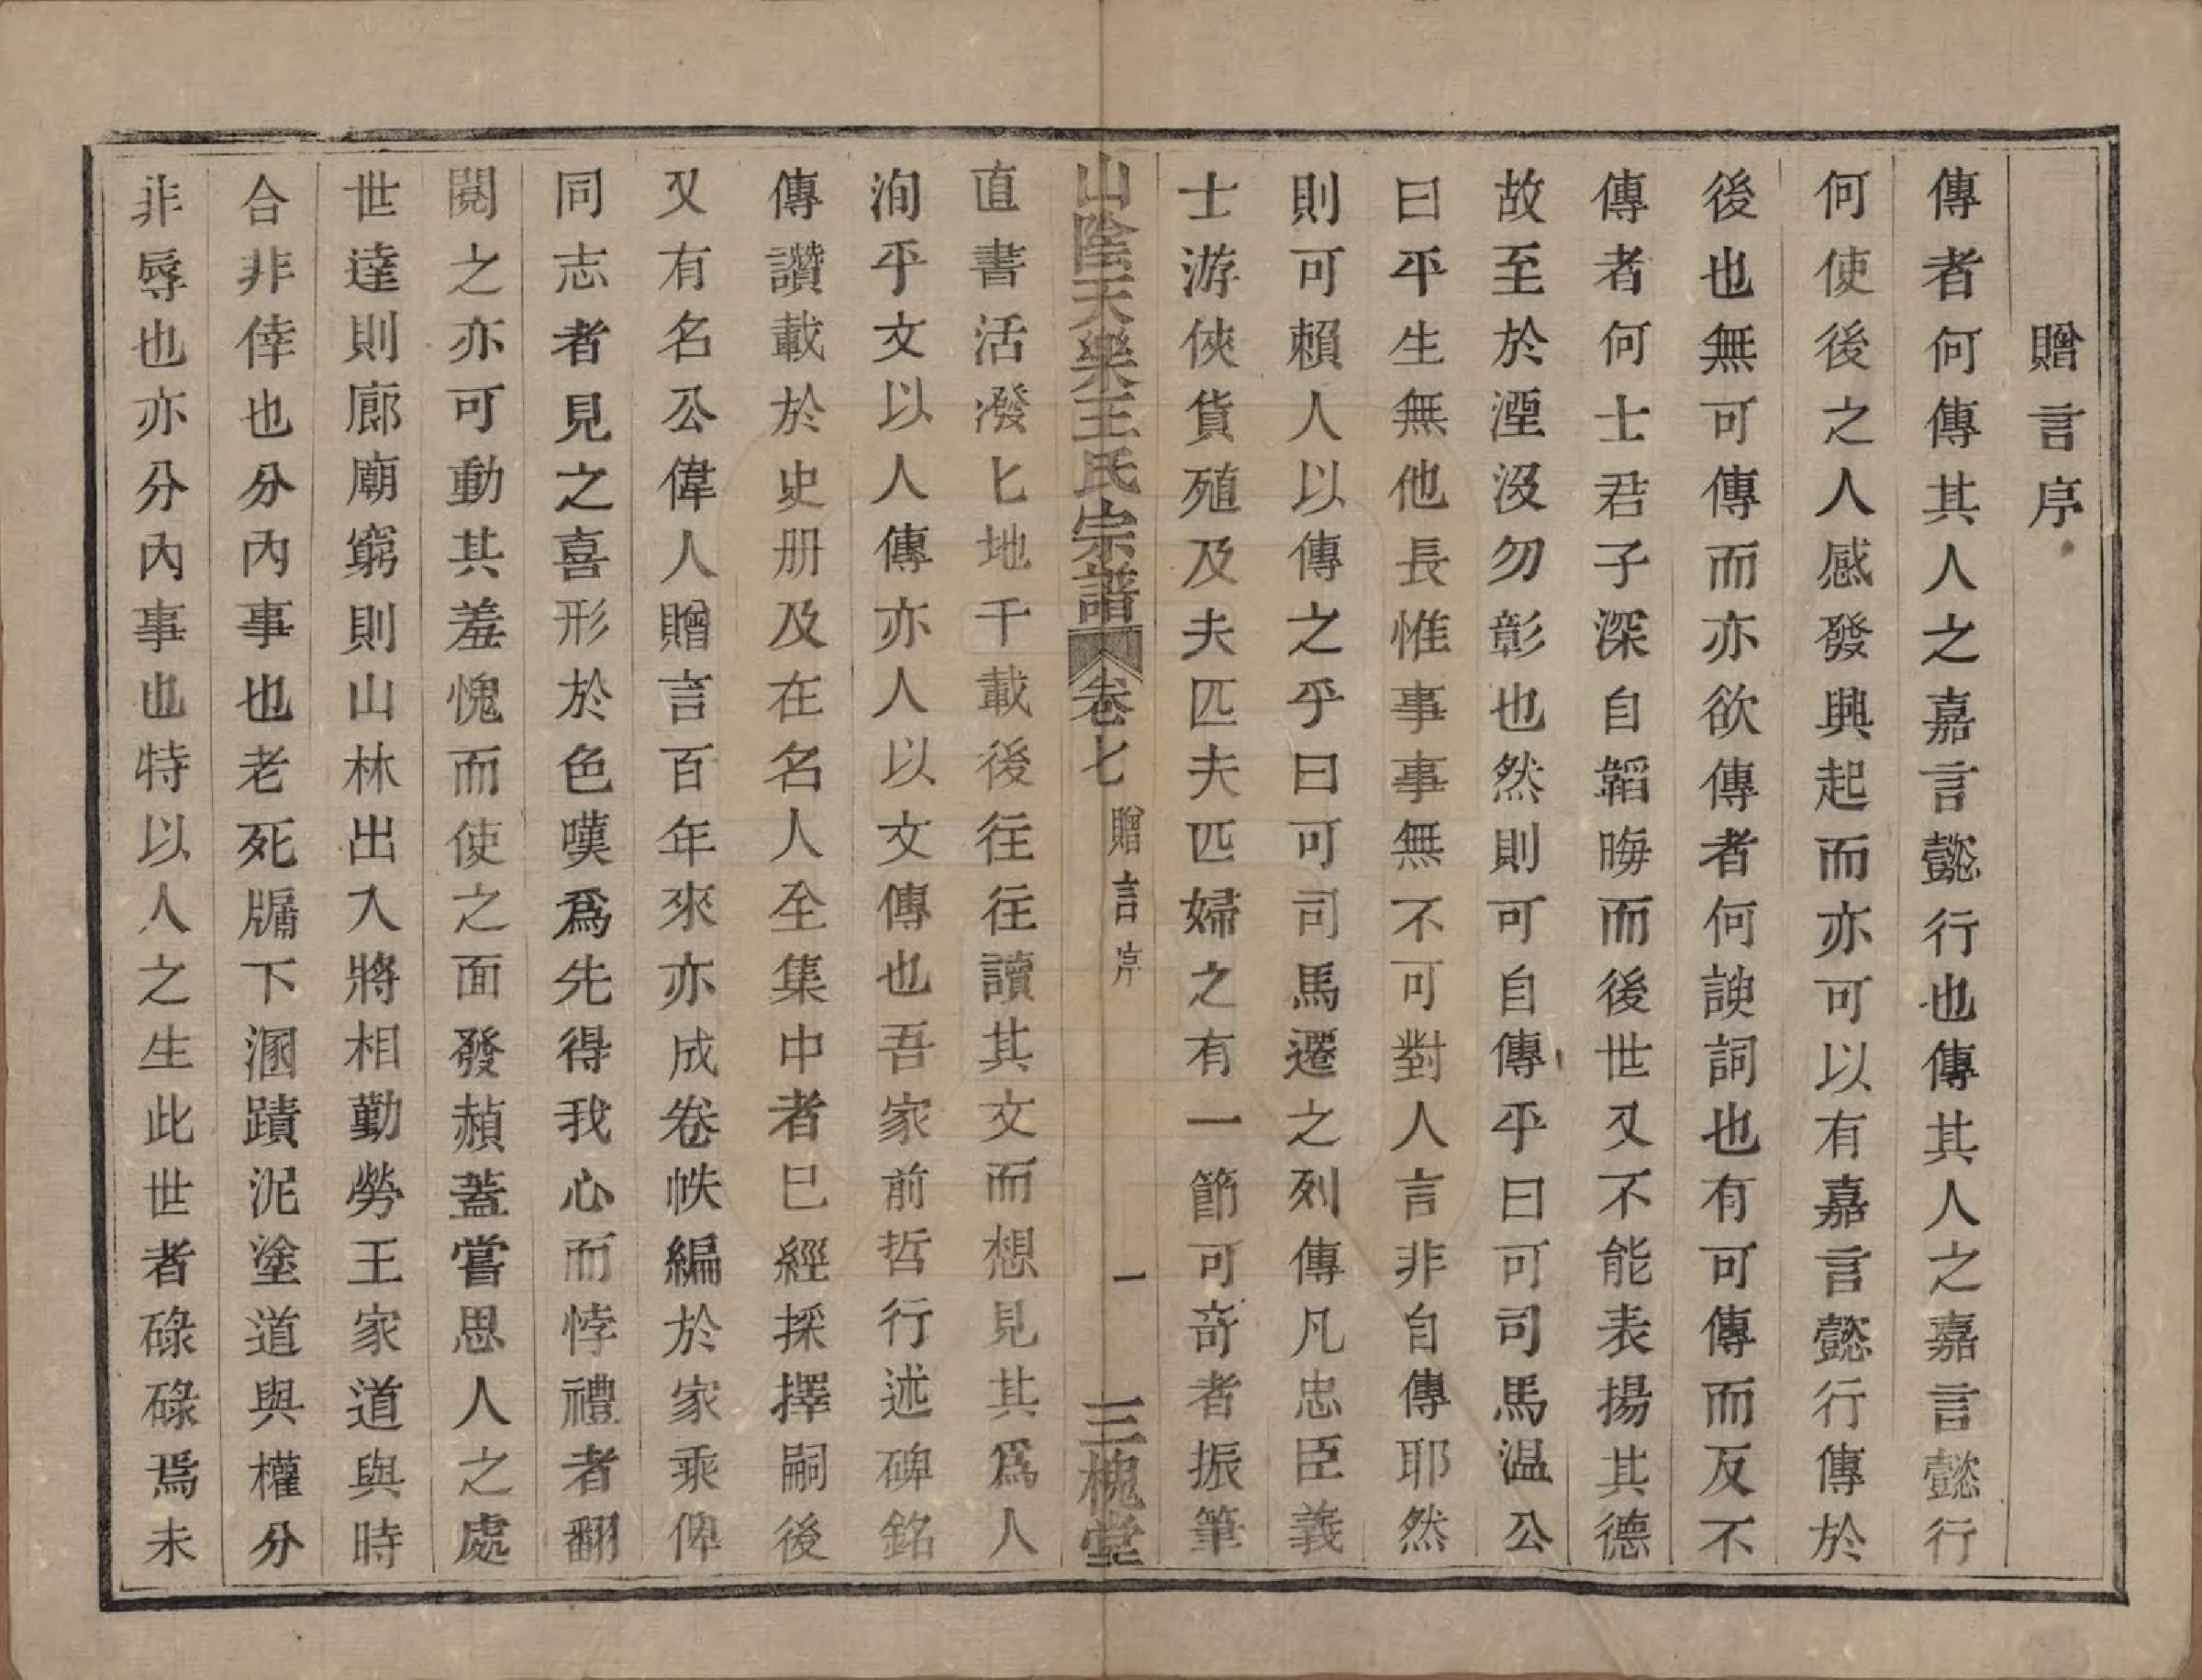 贈言序
傳者何傳其人之嘉言懿行也傳其人之嘉言懿行
何使後之人感發興起而亦可以有嘉言懿行傳於
後也無可傳而亦欲傳者何諛詞也有可傳而反不
傳者何士君子深自韜晦而後世又不能表揚其德
故至於湮沒勿彰也然則可自傳乎曰可司馬温公
曰平生無他長惟事事無不可對人言非自傳耶然
則可賴人以傳之乎曰可司馬遷之列傳凡忠臣義
士游俠貨殖及夫匹夫匹婦之有一節可竒者振筆
山陰天樂王氏宗譜 卷七 贈言序 一 三槐堂
直書活潑匕地千載後往往讀其文而想見其爲人
洵乎文以人傳亦人以文傳也吾家前哲行述碑銘
傳讚載於史册及在名人全集中者已經採擇嗣後
又有名公偉人贈言百年來亦成卷帙編於家乘俾
同志者見之喜形於色嘆爲先得我心而悖禮者翻
閱之亦可動其羞愧而使之面發赬蓋嘗思人之處
世達則廊廟窮則山林出入將相勤勞王家道與時
合非倖也分內事也老死牖下溷蹟泥塗道與權分
非辱也亦分內事也特以人之生此世者碌碌焉未